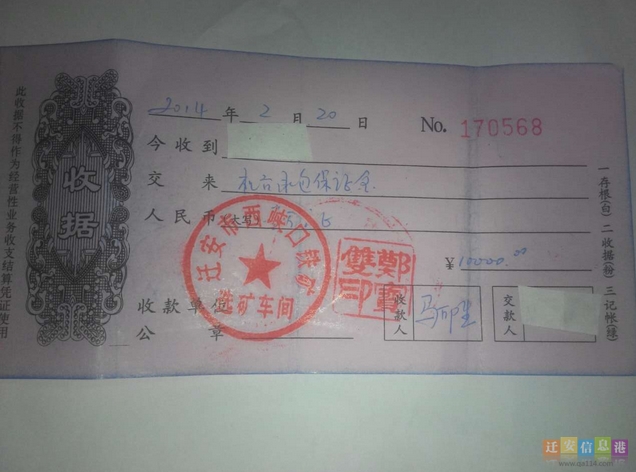 此收据不得作为经营性业务收支结算凭证使用
收据
2014年2月20日
No. 170568
今收到
交来 机台承包保证金
人民币(大写)
¥10000.00
收款单位
公章
收款人
交款人
迁安市西峡口铁矿
选矿车间
郑宝双印
一存根(白)二收据(粉)三记帐(绿)
迁安信息港